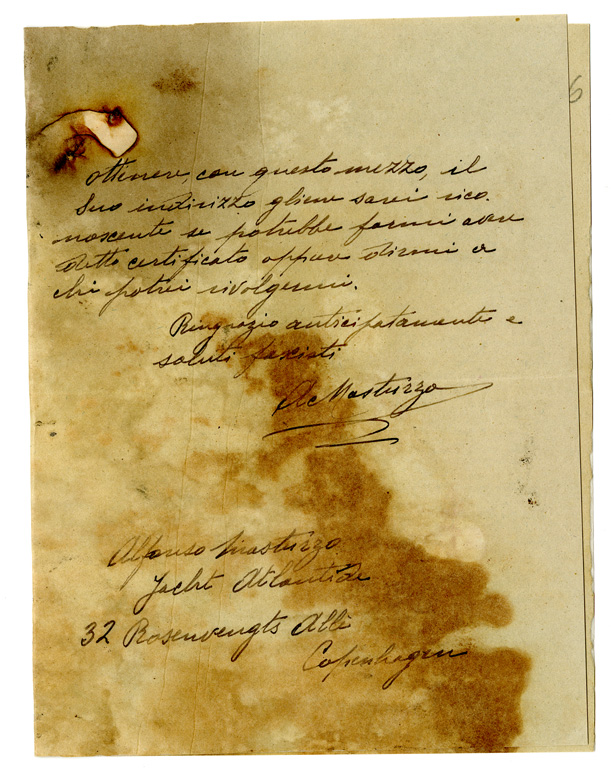 ottenere con questo mezzo, il
Suo indirizzo gliene sarei rico-
noscente se potrebbe farmi avere
detto certificato oppure dirmi a
chi potrei rivolgermi.
Ringrazio anticipatamente e
saluti fascisti
A Mastuzzo
Alfonso Mastuzzo
Yacht Atlantide
32 Rosenvengts Allè
Copenhagen
6